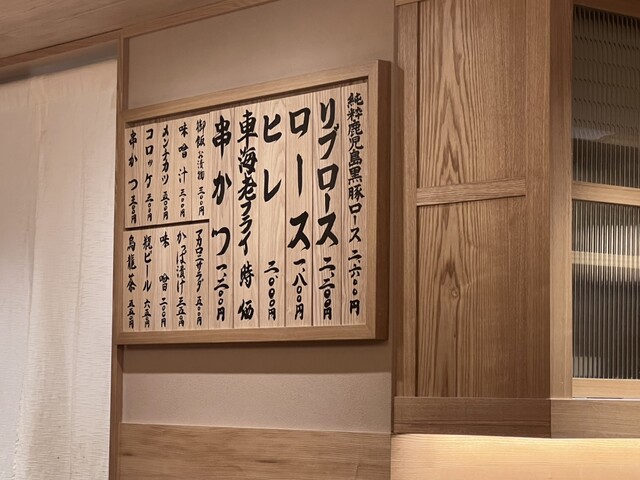 純粋鹿児島黒豚ロース 二、六〇〇円
リブロース 二、二〇〇円
ロース 一、八〇〇円
ヒレ 二、〇〇〇円
車海老フライ 時価
串かつ 一、二〇〇円
御飯 お漬物 三〇〇円
味噌汁 三〇〇円
メンチカツ 五〇〇円
コロッケ 三〇〇円
串かつ 三五〇円
マカロニサラダ 五〇〇円
かっぱ漬け 三五〇円
味噌 二〇〇円
瓶ビール 六五〇円
烏龍茶 五五〇円